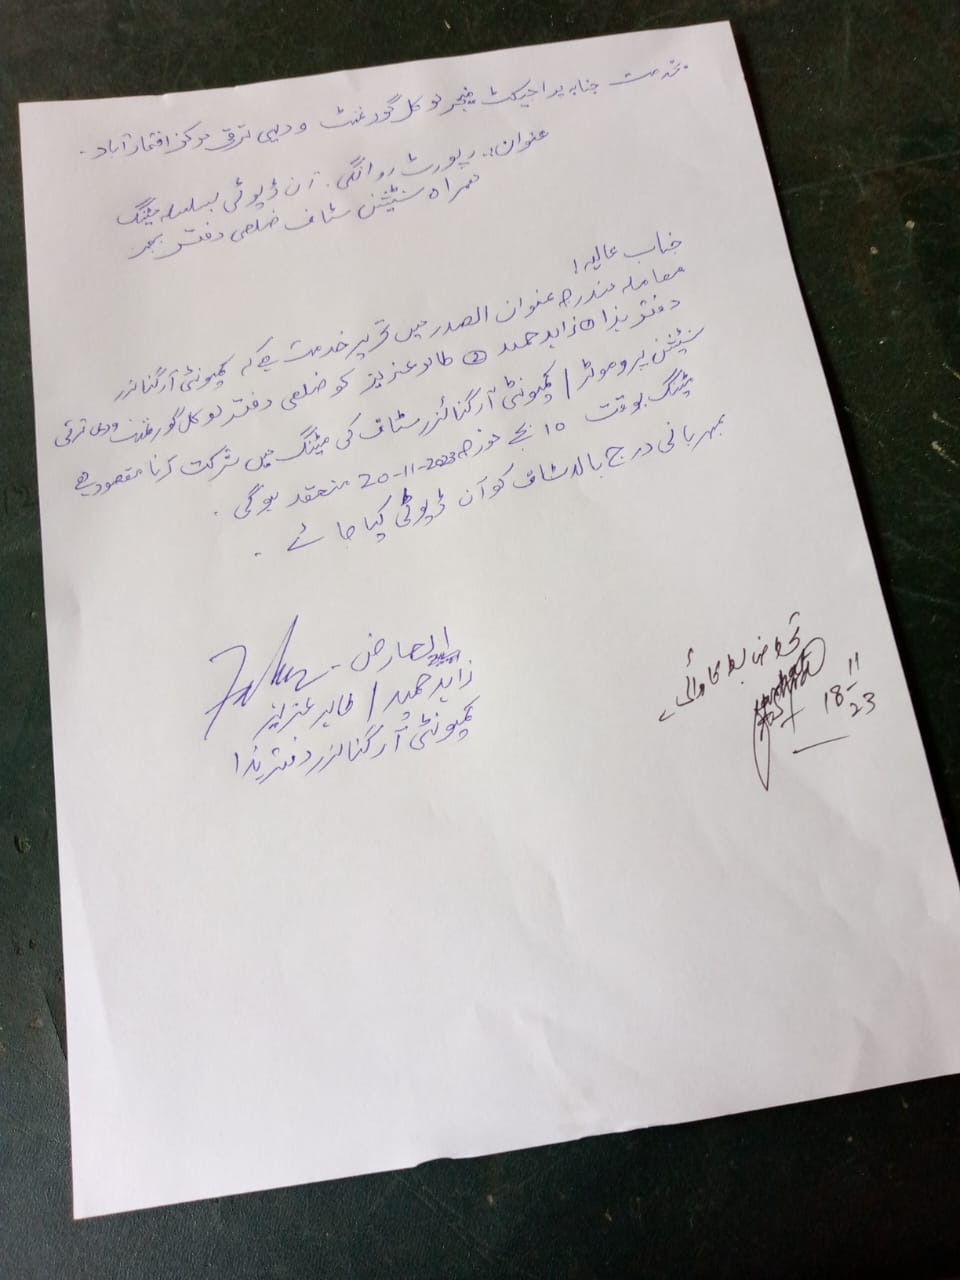 بخدمت جناب پراجیکٹ منیجر لوکل گورنمنٹ و دیہی ترقی مرکز افتخار آباد۔
عنوان:۔ رپورٹ روانگی۔ آن ڈیوٹی بسلسلہ میٹنگ
ہمراہ سٹیشن سٹاف ضلعی دفتر
جناب عالیہ!
معاملہ مندرجہ عنوان الصدر میں تحریر خدمت ہے کہ کمیونٹی آرگنائزر
دفتر ہذا ① زاہد حمید ② طاہر عزیز کو ضلعی دفتر لوکل گورنمنٹ و دیہی ترقی
سٹیشن پروموٹر / کمیونٹی آرگنائزر سٹاف کی میٹنگ میں شرکت کرنا مقصود ہے
میٹنگ بوقت 10 بجے مورخہ 20-11-2023 منعقد ہو گی۔
بمہربانی درج بالا سٹاف کو آن ڈیوٹی کیا جائے۔
العارض
زاہد حمید / طاہر عزیز
کمیونٹی آرگنائزر دفتر ہذا
18-11
23